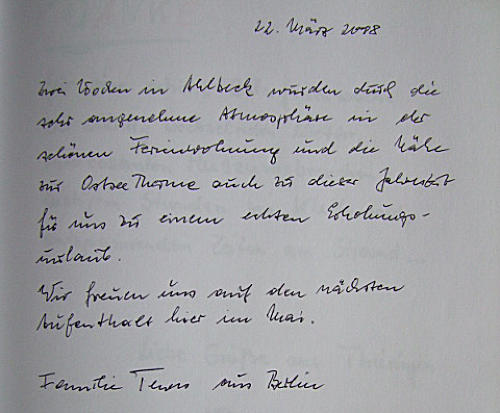 22. März 2008
Zwei Wochen in Ahlbeck wurden durch die
sehr angenehme Atmosphäre in der
schönen Ferienwohnung und die Nähe
zur Ostsee Therme auch zu dieser Jahreszeit
für uns zu einem echten Erholungs-
urlaub.
Wir freuen uns auf den nächsten
Aufenthalt hier im Mai.
Familie aus Berlin